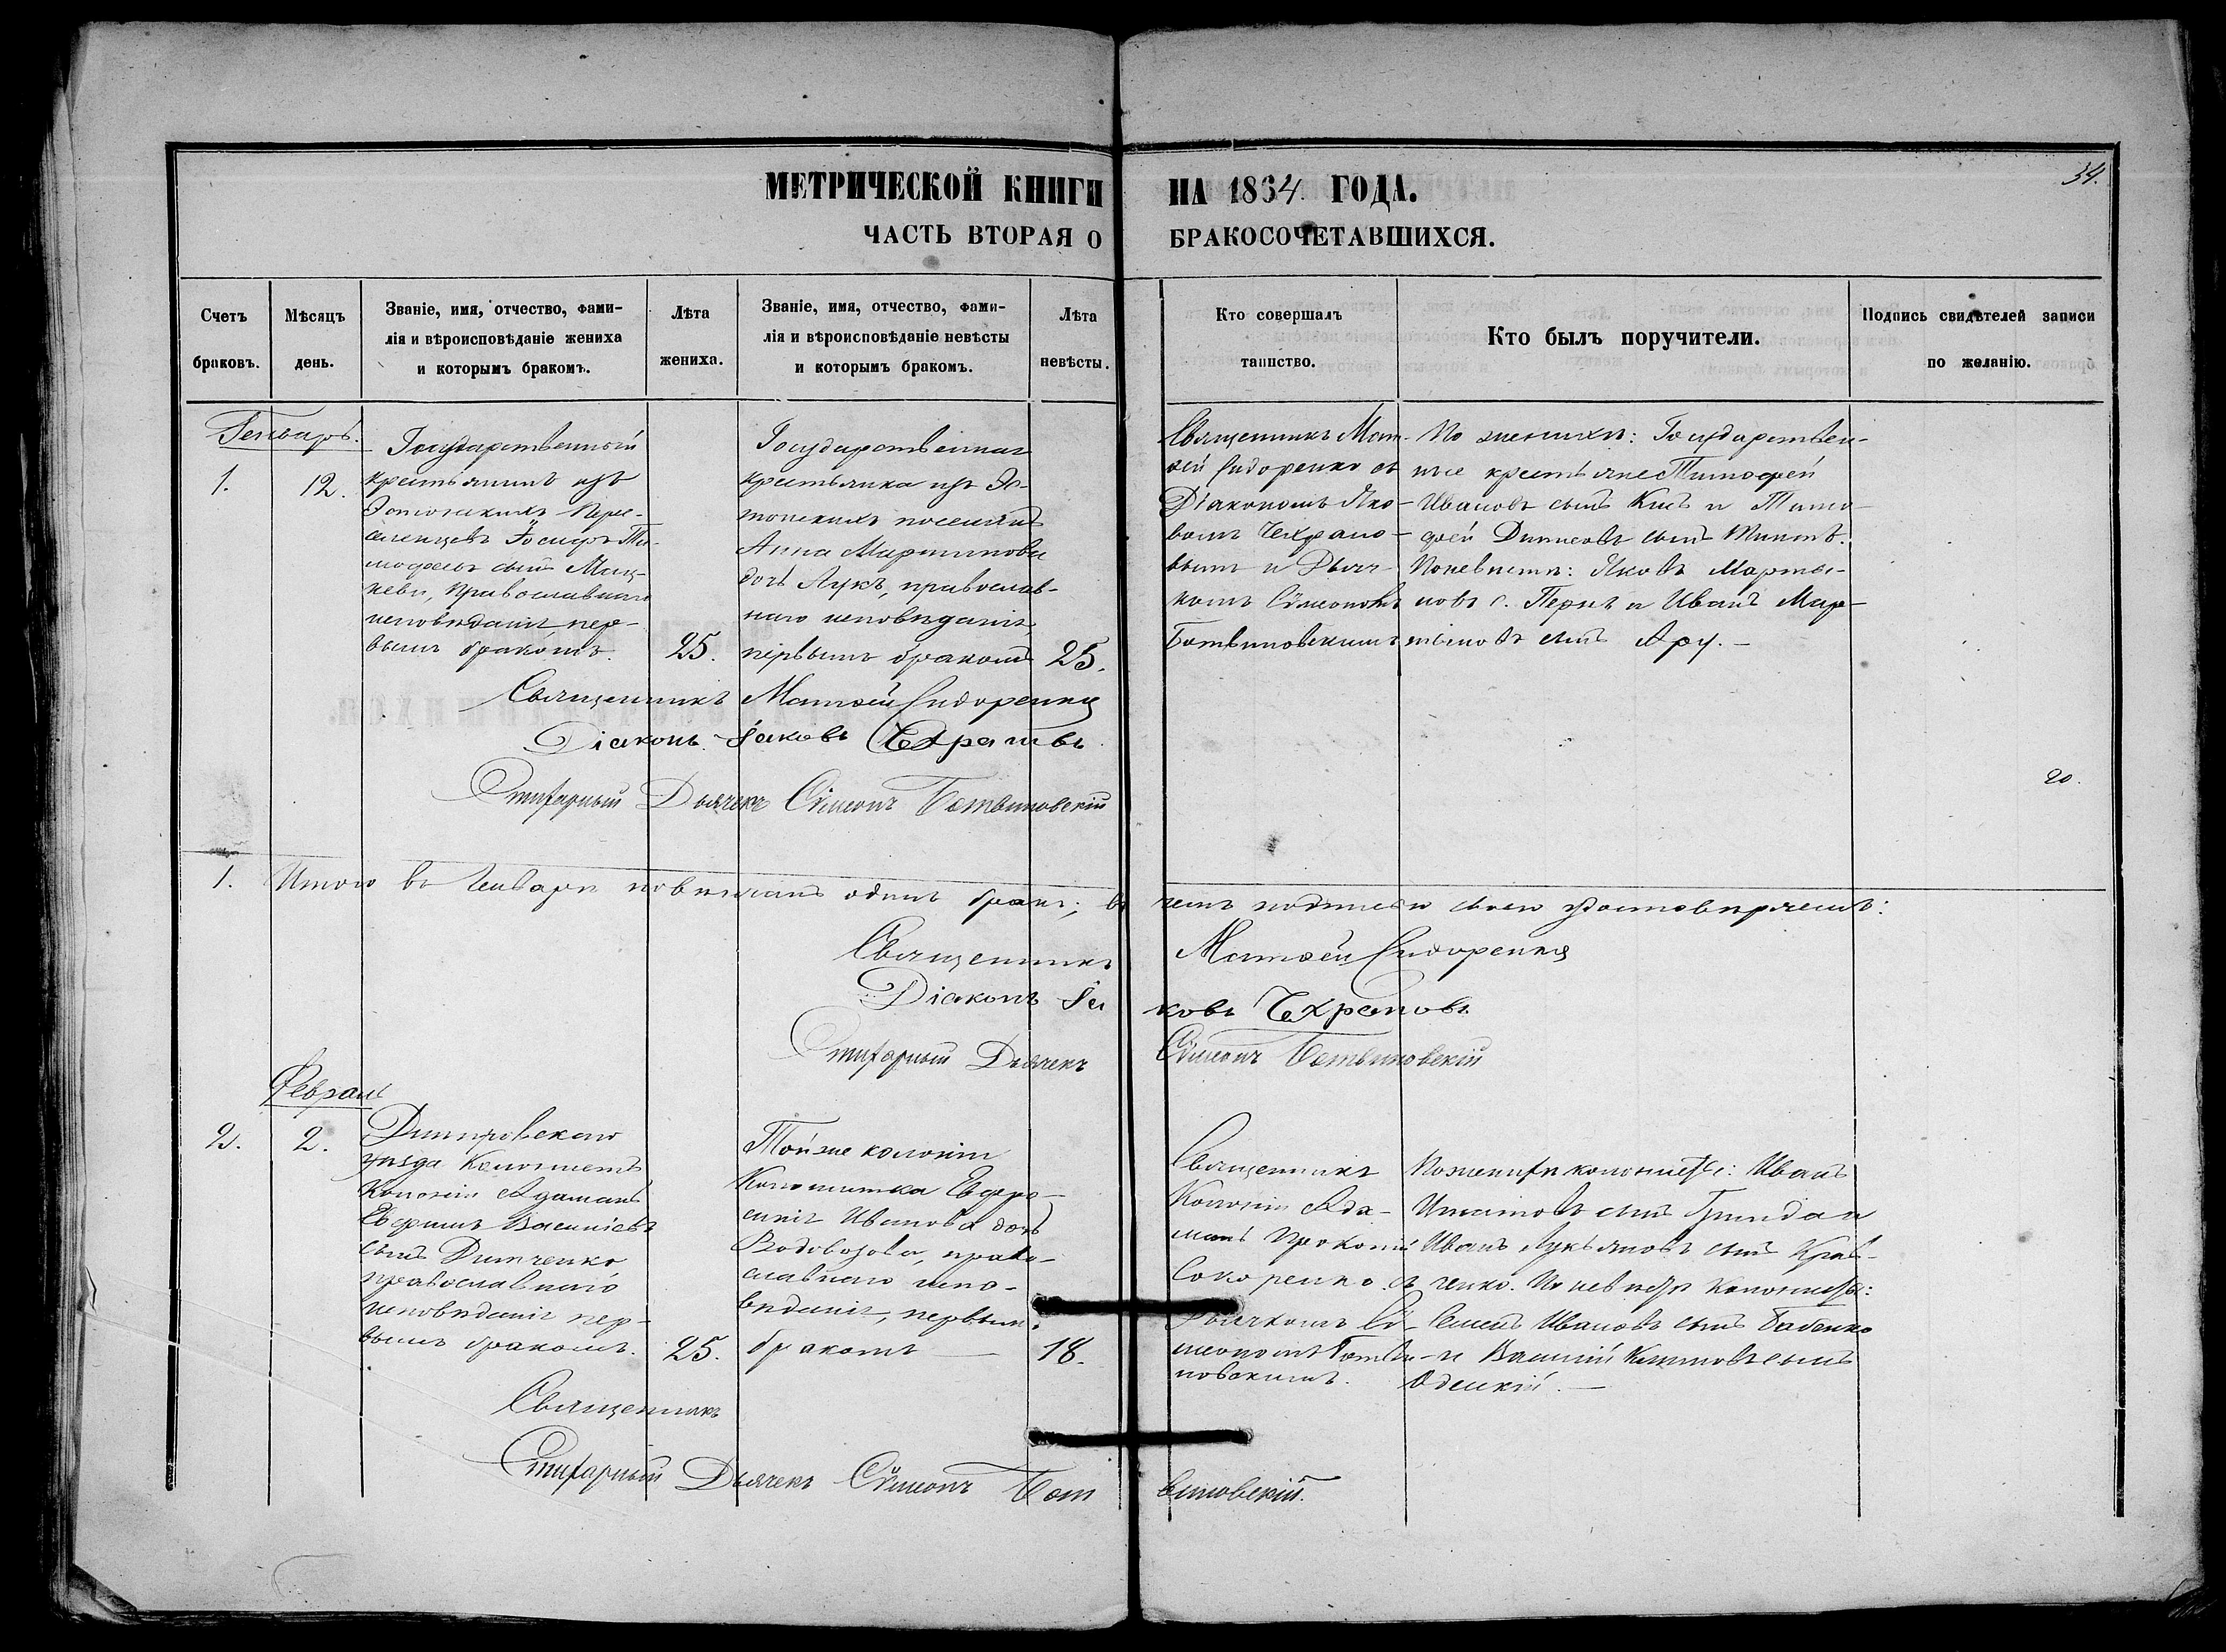 34.
МЕТРИЧЕСКОЙ КНИГИ НА 1864 ГОДА.
ЧАСТЬ ВТОРАЯ О БРАКОСОЧЕТАВШИХСЯ.
Счетъ
браковъ.
Мѣсяцъ
день.
Званіе, имя, отчество, фами-
лія и вѣроисповѣданіе жениха
и которымъ бракомъ.
Лѣта
жениха.
Званіе, имя, отчество, фами-
лія и вѣроисповѣданіе невѣсты
и которымъ бракомъ.
Лѣта
невѣсты.
Кто совершалъ
таинство.
Кто былъ поручители.
Подпись свидѣтелей записи
по желанію.
Генварь.
1.
12.
Государственный
крестьянинъ изъ
Эстонскихъ Пере-
селенцевъ Іосифъ Ти-
мофеевъ сынъ
православнаго
исповѣданія пер-
вымъ бракомъ.
25.
Государственная
крестьянка изъ Эс-
тонскихъ поселянъ
Анна Мартинова
дочь Лукъ, православ-
наго исповѣданія,
первымъ бракомъ
25.
Священникъ Мат-
ѳей Сидоренко съ
Діакономъ Яко-
вомъ Чехрано-
вымъ и Дьяч-
комъ Сѵмеономъ
Ботвиновскимъ
По женихѣ: Государствен-
ные крестьяне Тимофей
Ивановъ сынъ и Тимо-
фей сынъ
По невѣстѣ: Яковъ Марты-
новъ с. и Иванъ Мар-
тыновъ сынъ
Священникъ Матѳей Сидоренко
Діаконъ Іаковъ Чехрановъ
Стихарный Дьячекъ Сѵмеонъ Ботвиновскій
20.
1. Итого въ Генварѣ повѣнчанъ одинъ бракъ; въ чемъ подписью своею удостовѣряемъ:
Священникъ Матѳей Сидоренко
Діаконъ Іаковъ Чехрановъ
Стихарный Дьячекъ Сѵмеонъ Ботвиновскій
Февраль
2.
2.
Днѣпровскаго
уѣзда Колонистъ
Колоніи Адамань
Ефримъ Василіевъ
сынъ Димченко
православнаго
исповѣданія пер-
вымъ бракомъ.
25.
Той же колоніи
Колонистка Евфро-
синія Иванова дочь
Водовозова, право-
славнаго испо-
вѣданія, первымъ
бракомъ
18.
Священникъ
Колоніи Ада-
мань Прокопій
Сокоренко съ
Дьячкомъ Сѵ-
меономъ Ботви-
новскимъ.
По женихѣ колонисты: Иванъ
Игнатовъ сынъ и
Иванъ Лукьяновъ сынъ Крав-
ченко. По невѣстѣ колонисты:
Семенъ Ивановъ сынъ Бабенко
и Василій сынъ
Одескій.
Священникъ
Стихарный Дьячекъ Сѵмеонъ Ботвиновскій.